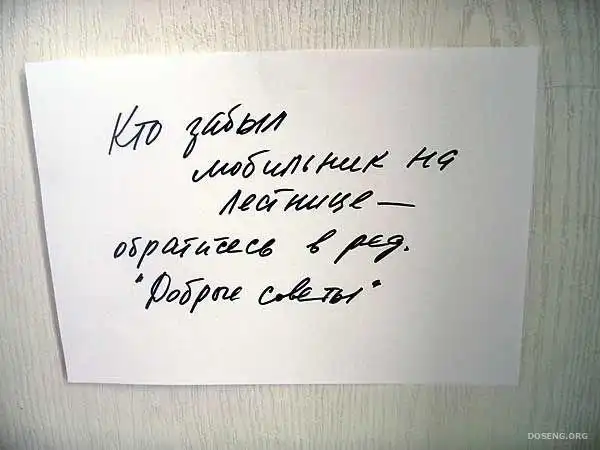 Кто забыл
мобильник на
лестнице —
обратитесь в ред.
"Добрые советы"
DOSENG.ORG